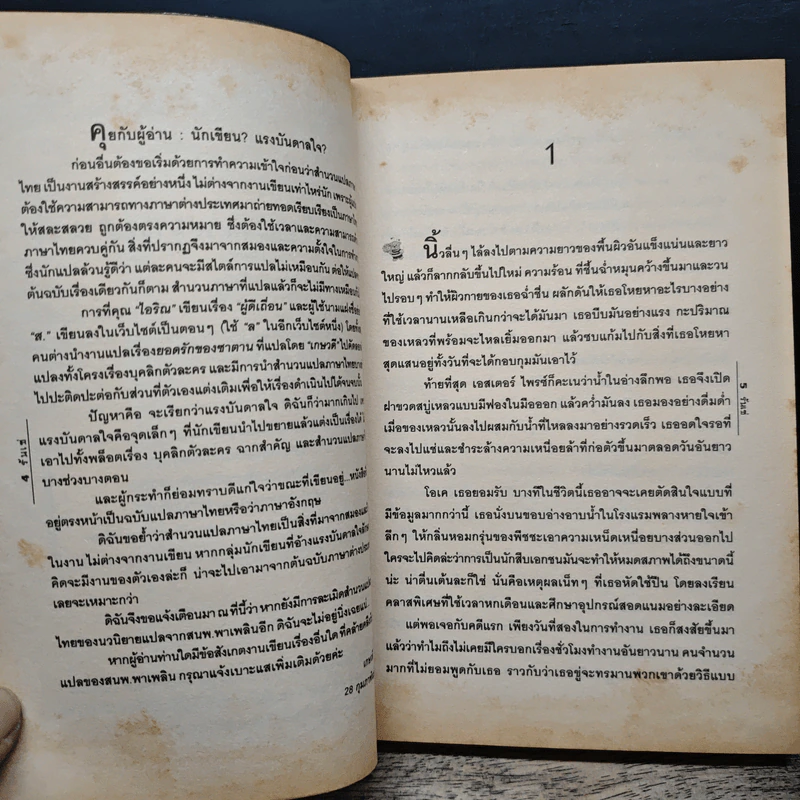 คุยกับผู้อ่าน : นักเขียน? แรงบันดาลใจ?
ก่อนอื่นต้องขอเริ่มด้วยการทำความเข้าใจก่อนว่าสำนวนแปลภา
ไทย เป็นงานสร้างสรรค์อย่างหนึ่ง ไม่ต่างจากงานเขียนเท่าไหร่นัก เพราะผู้
ต้องใช้ความสามารถทางภาษาต่างประเทศมาถ่ายทอดเรียบเรียงเป็นภาษาไ
ให้สละสลวย ถูกต้องตรงความหมาย ซึ่งต้องใช้เวลาและความสามาร
ภาษาไทยควบคู่กัน สิ่งที่ปรากฏจึงมาจากสมองและความตั้งใจในการทำ
ซึ่งนักแปลล้วนรู้ดีว่า แต่ละคนจะมีสไตล์การแปลไม่เหมือนกัน ต่อให้แปล
ต้นฉบับเรื่องเดียวกันก็ตาม สำนวนภาษาที่แปลแล้วก็จะไม่มีทางเหมือนกั
การที่คุณ "ไอริณ" เขียนเรื่อง "ผู้ดีเถื่อน" และผู้ใช้นามแฝงชื่อ
"ส." เขียนลงในเว็บไซต์เป็นตอนๆ (ใช้ "ล" ในอีกเว็บไซต์หนึ่ง) โดย
คนต่างนำงานแปลเรื่องยอดรักของซาตาน ที่แปลโดย "เกษวดี" ไป
แปลงทั้งโครงเรื่องบุคลิกตัวละคร และมีการนำสำนวนแปลภาษาไทยบาง
ไปปะติดปะต่อกับส่วนที่ตัวเองแต่งเติมเพื่อให้เรื่องดำเนินไปได้จนจบนั้น
ปัญหาคือ จะเรียกว่าแรงบันดาลใจ ดิฉันก็ว่ามากเกินไป
แรงบันดาลใจคือจุดเล็กๆ ที่นักเขียนนำไปขยายแล้วแต่งเป็นเรื่องได้
เอาไปทั้งพล็อตเรื่อง บุคลิกตัวละคร ฉากสำคัญ และสำนวนแปลภา
บางช่วงบางตอน
และผู้กระทำก็ย่อมทราบดีแก่ใจว่าขณะที่เขียนอยู่...หนังสือที่
อยู่ตรงหน้าเป็นฉบับแปลภาษาไทยหรือว่าภาษาอังกฤษ
ดิฉันขอย้ำว่าสำนวนแปลภาษาไทยเป็นสิ่งที่มาจากสมองและ
ในงาน ไม่ต่างจากงานเขียน หากกลุ่มนักเขียนที่อ้างแรงบันดาลใจ
คิดจะมีงานของตัวเองล่ะก็ น่าจะไปเอามาจากต้นฉบับภาษาต่างประ
เลยจะเหมาะกว่า
ดิฉันจึงขอแจ้งเตือนมา ณ ที่นี้ว่า หากยังมีการละเมิดสำนวนแปล
ไทยของนวนิยายแปลจากสนพ.พาเพลินอีก ดิฉันจะไม่อยู่นิ่งเฉยแน่
หากผู้อ่านท่านใดมีข้อสังเกตงานเขียนเรื่องอื่นใด ที่คล้ายคลึง
แปลของสนพ.พาเพลิน กรุณาแจ้งเบาะแสเพิ่มเติมด้วยค่ะ
28 กุมภาพัน
4 รันเร่
1
นิ้วลื่นๆ ไล้ลงไปตามความยาวของพื้นผิวอันแข็งแน่นและยาว
ใหญ่ แล้วก็ลากกลับขึ้นไปใหม่ ความร้อน ที่ชื้นฉ่ำหมุนคว้างขึ้นมาและวน
ไปรอบๆ ทำให้ผิวกายของเธอฉ่ำชื่น ผลักดันให้เธอโหยหาอะไรบางอย่าง
ที่ใช้เวลานานเหลือเกินกว่าจะได้มันมา เธอบีบมันอย่างแรง กะปริมาณ
ของเหลวที่พร้อมจะไหลเยิ้มออกมา แล้วซบแก้มไปกับสิ่งที่เธอโหยหา
สุดแสนอยู่ทั้งวันที่จะได้กอบกุมมันเอาไว้
ท้ายที่สุด เอสเตอร์ ไพรซ์ก็คะเนว่าน้ำในอ่างลึกพอ เธอจึงเปิด
ฝาขวดสบู่เหลวแบบมีฟองในมือออก แล้วคว่ำมันลง เธอมองอย่างดื่มด่ำ
เมื่อของเหลวนั้นลงไปผสมกับน้ำที่ไหลลงมาอย่างรวดเร็ว เธออดใจรอที่
จะลงไปแช่และชำระล้างความเหนื่อยล้าที่ก่อตัวขึ้นมาตลอดวันอันยาว
นานไม่ไหวแล้ว
โอเค เธอยอมรับ บางทีในชีวิตนี้เธออาจจะเคยตัดสินใจแบบที่
มีข้อมูลมากกว่านี้ เธอนั่งบนขอบอ่างอาบน้ำในโรงแรมพลางหายใจเข้า
ลึกๆ ให้กลิ่นหอมกรุ่นของพีชชะเอาความเหน็ดเหนื่อยบางส่วนออกไป
ใครจะไปคิดล่ะว่าการเป็นนักสืบเอกชนมันจะทำให้หมดสภาพได้ถึงขนาดนี้
น่ะ น่าตื่นเต้นล่ะก็ใช่ นั่นคือเหตุผลเน็ทๆ ที่เธอหัดใช้ปืน โดยลงเรียน
คลาสพิเศษที่ใช้เวลาหกเดือนและศึกษาอุปกรณ์สอดแนมอย่างละเอียด
แต่พอเจอกับคดีแรก เพียงวันที่สองในการทำงาน เธอก็สงสัยขึ้นมา
แล้วว่าทำไมถึงไม่เคยมีใครบอกเรื่องชั่วโมงทำงานอันยาวนาน คนจำนวน
มากที่ไม่ยอมพูดกับเธอ ราวกับว่าเธอขู่จะทรมานพวกเขาด้วยวิธีแบบ
5 รันเร่